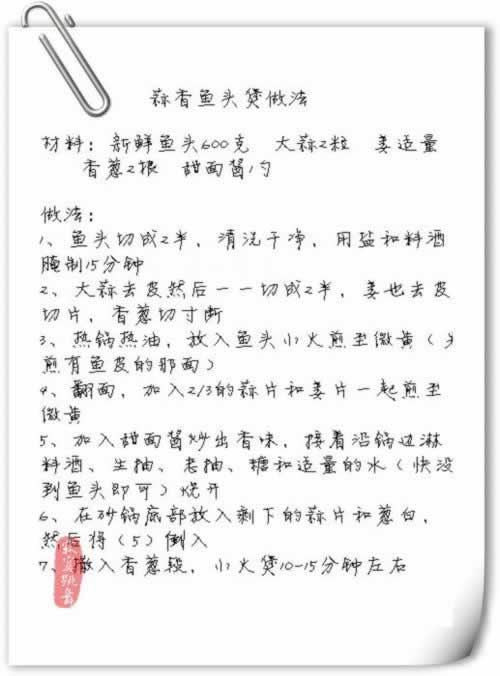 蒜香鱼头煲做法
材料：新鲜鱼头600克 大蒜2粒 姜适量
香葱2根 甜面酱1勺
做法：
1、鱼头切成2半，清洗干净，用盐和料酒
腌制15分钟
2、大蒜去皮然后一一切成2半，姜也去皮
切片，香葱切寸断
3、热锅热油，放入鱼头小火煎至微黄（只
煎有鱼皮的那面）
4、翻面，加入2/3的蒜片和姜片一起煎至
微黄
5、加入甜面酱炒出香味，接着沿锅边淋
料酒、生抽、老抽、糖和适量的水（快没
到鱼头即可）烧开
6、在砂锅底部放入剩下的蒜片和葱白，
然后将（5）倒入
7、撒入香葱段，小火煲10-15分钟左右